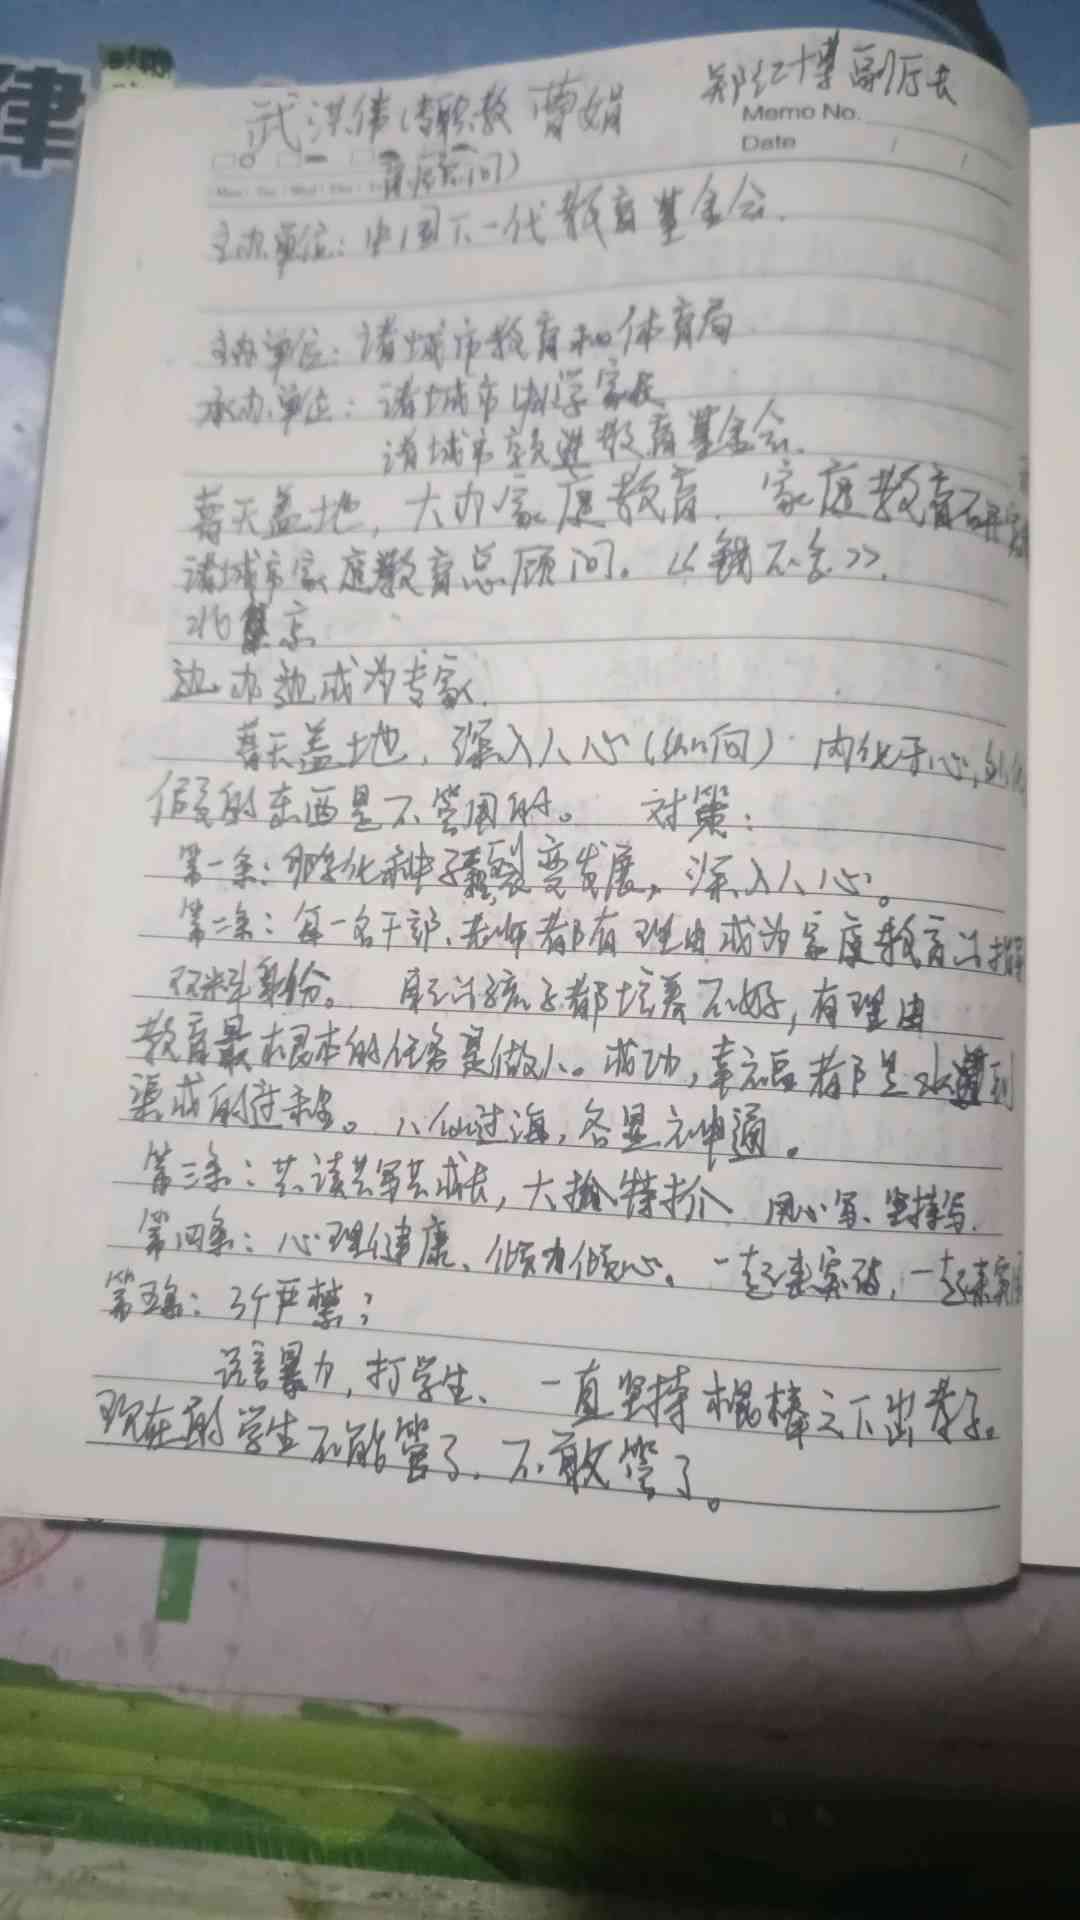 律
郑红博副厅长
武洪伟(专职教 曹娟
Memo No.
Date / /
顾问)
主办单位:中国下一代教育基金会.
主办单位:诸城市教育和体育局
承办单位:诸城市 学家长
诸城市 进教育基金会.
普天盖地,大办家庭教育. 家庭教育不
诸城市家庭教育总顾问。《 不会》.
北 京
边办边成为专家.
普天盖地,深入人心(如何) 内化于心,外化
假的东西是不管用的。 对策:
第一条: 孵化种子裂变发展,深入人心。
第二条:每一名干部、老师都有理由成为家庭教育的指导
双料身份。 自己的孩子都培养不好,有理由
教育最根本的任务是做人。成功,幸福都是水到
渠成的过程。八仙过海,各显神通。
第三条:共读共写共成长,大 特 用心写、坚持写.
第四条:心理健康、倾力倾心。一起来突破,一起来实
第五条:3个严禁:
语言暴力,打学生、 一直坚持棍棒之下出孝子。
现在的学生不能管了.不敢管了。